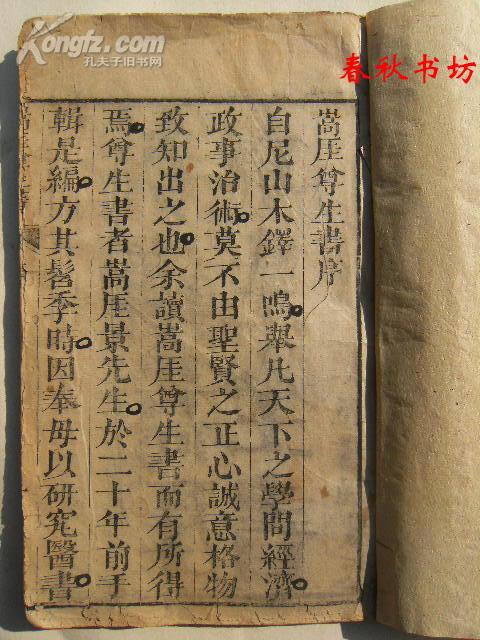 Kongfz.com
孔夫子旧书网
春秋书坊
嵩厓尊生書序
自尼山木鐸一鳴舉凡天下之學問經濟
政事治術莫不由聖賢之正心誠意格物
致知出之也余讀嵩厓尊生書而有所得
焉尊生書者嵩厓景先生於二十年前手
輯是編方其髫季時因奉母以研究醫書